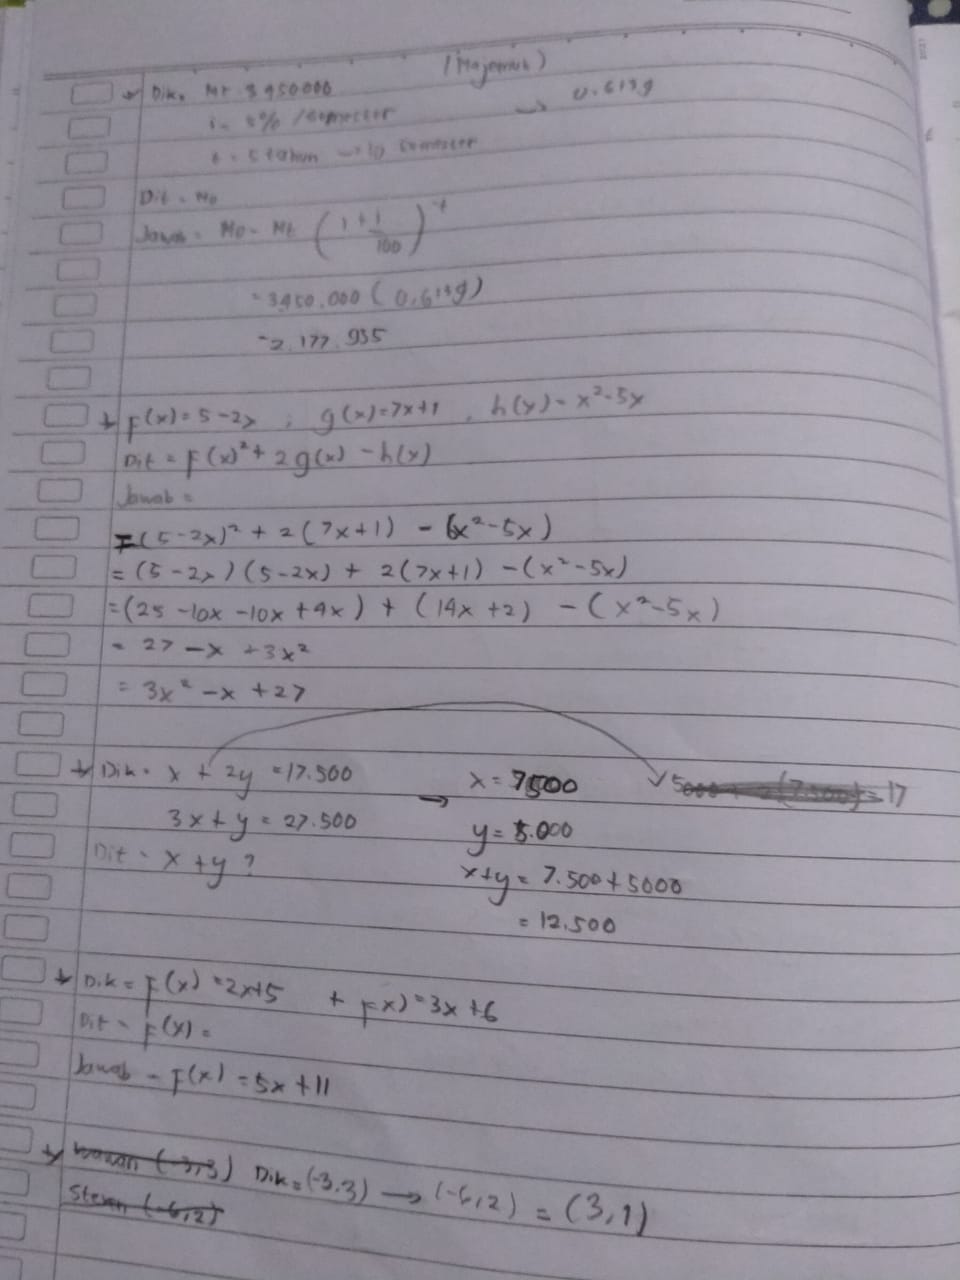 (Majemuk)
Dik. Mt 3950000
i = 5% /semester → 0.6139
t = 5 tahun → 10 semester
Dit = Mo
Jawab = Mo = Mt (1 + i/100)^-t
= 3.950.000 (0,6139)
= 2.177.935
F(x) = 5-2x ; g(x)=7x+1 , h(x) = x²-5x
Dit = F(x)² + 2g(x) - h(x)
Jawab =
= (5-2x)² + 2(7x+1) - (x²-5x)
= (5-2x)(5-2x) + 2(7x+1) - (x²-5x)
= (25 -10x -10x +4x) + (14x +2) - (x²-5x)
= 27 -x +3x²
= 3x² -x +27
Dik = x + 2y = 17.500 → x = 7500 5000 + 2(7.500) = 17
3x + y = 27.500 y = 5.000
Dit = x + y ? x+y = 7.500 + 5000
= 12.500
Dik = F(x) = 2x+5 + F(x) = 3x +6
Dit = F(x) =
Jawab = F(x) = 5x +11
(-3,3) Dik = (-3.3) → (-6,2) = (3,1)
Steven (-6,2)